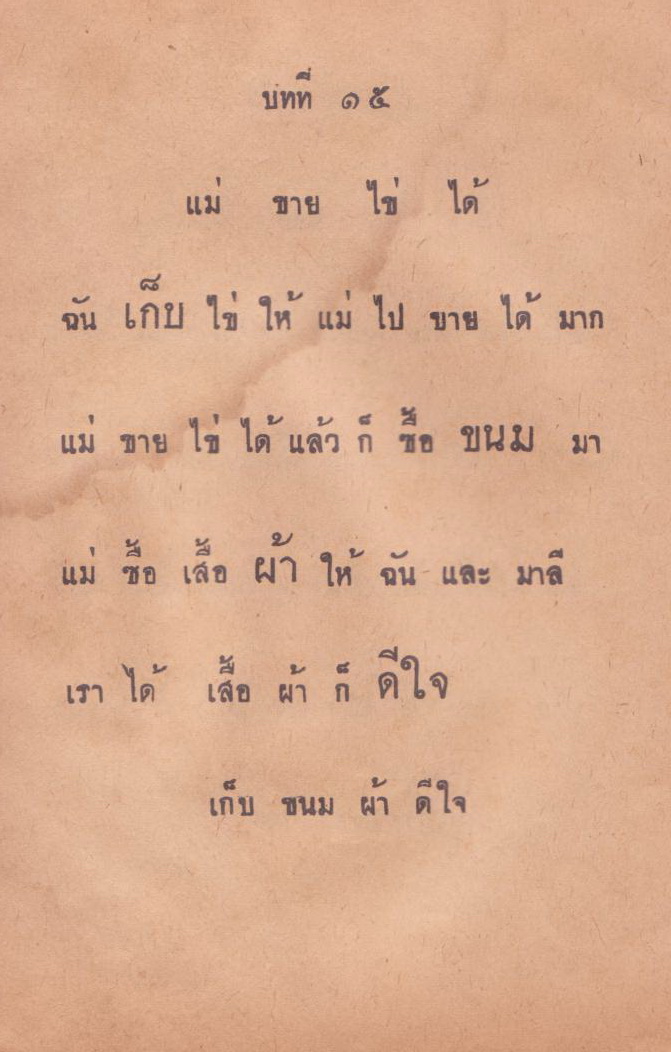 บทที่ ๑๕
แม่ ขาย ไข่ ได้
ฉัน เก็บ ไข่ ให้ แม่ ไป ขาย ได้ มาก
แม่ ขาย ไข่ ได้ แล้ว ก็ ซื้อ ขนม มา
แม่ ซื้อ เสื้อ ผ้า ให้ ฉัน และ มาลี
เรา ได้ เสื้อ ผ้า ก็ ดีใจ
เก็บ ขนม ผ้า ดีใจ